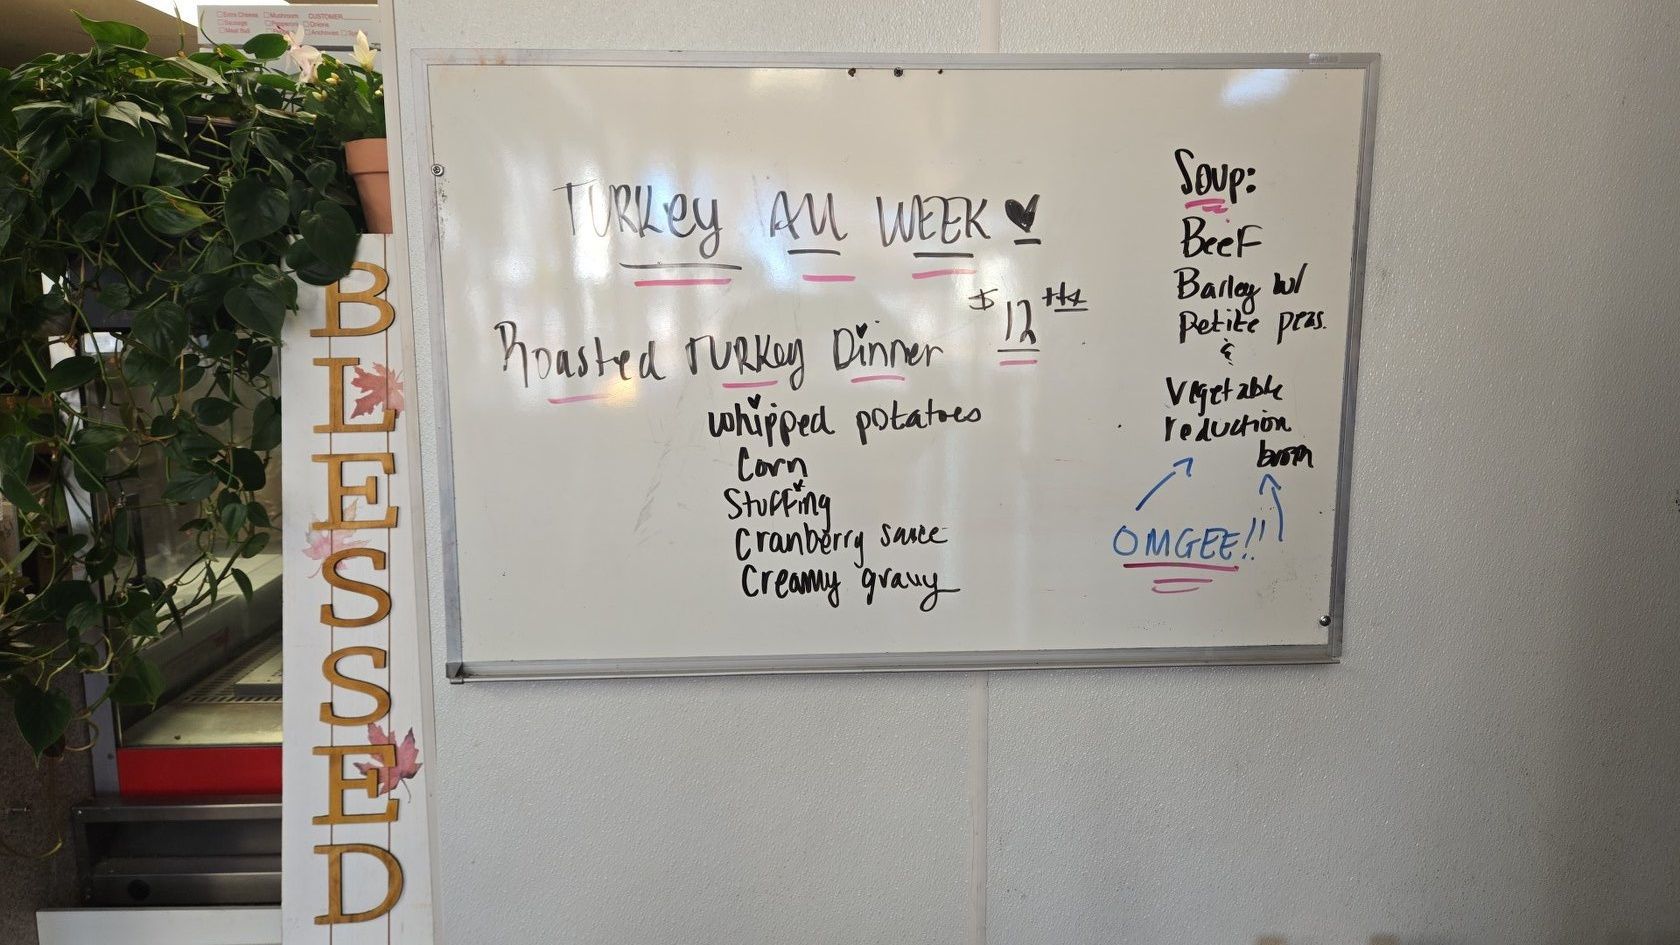 Extra Cheese Mushroom CUSTOMER
Sausage Pepperoni Onions
Meat Ball Anchovies
BLESSED
TURKey All WEEK ♥
Roasted TURKey Dinner $12
Whipped potatoes
Corn
Stuffing
Cranberry sauce
Creamy gravy
Soup:
BeeF
Barley w/
petite peas.
&
Vegetable
reduction
broth
OMGEE!!